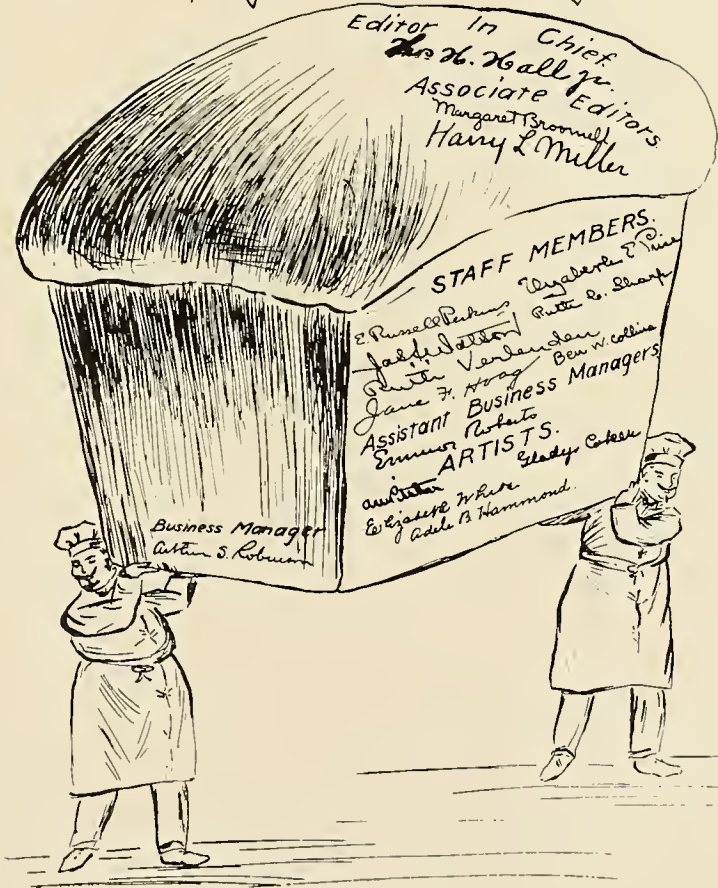 Editor In Chief.
Thos H. Hall jr.
Associate Editors
Margaret Broomell
Harry L Miller
STAFF MEMBERS.
E. Russell Perkins Elizabeth E Price
Ruth C. Sharp
Ruth Verlenden
Jane F. Hoag Ben W. Collins
Assistant Business Managers
Emmor Roberts
ARTISTS.
Gladys
Elizabeth White
Adele B Hammond.
Business Manager
Arthur S. Robinson